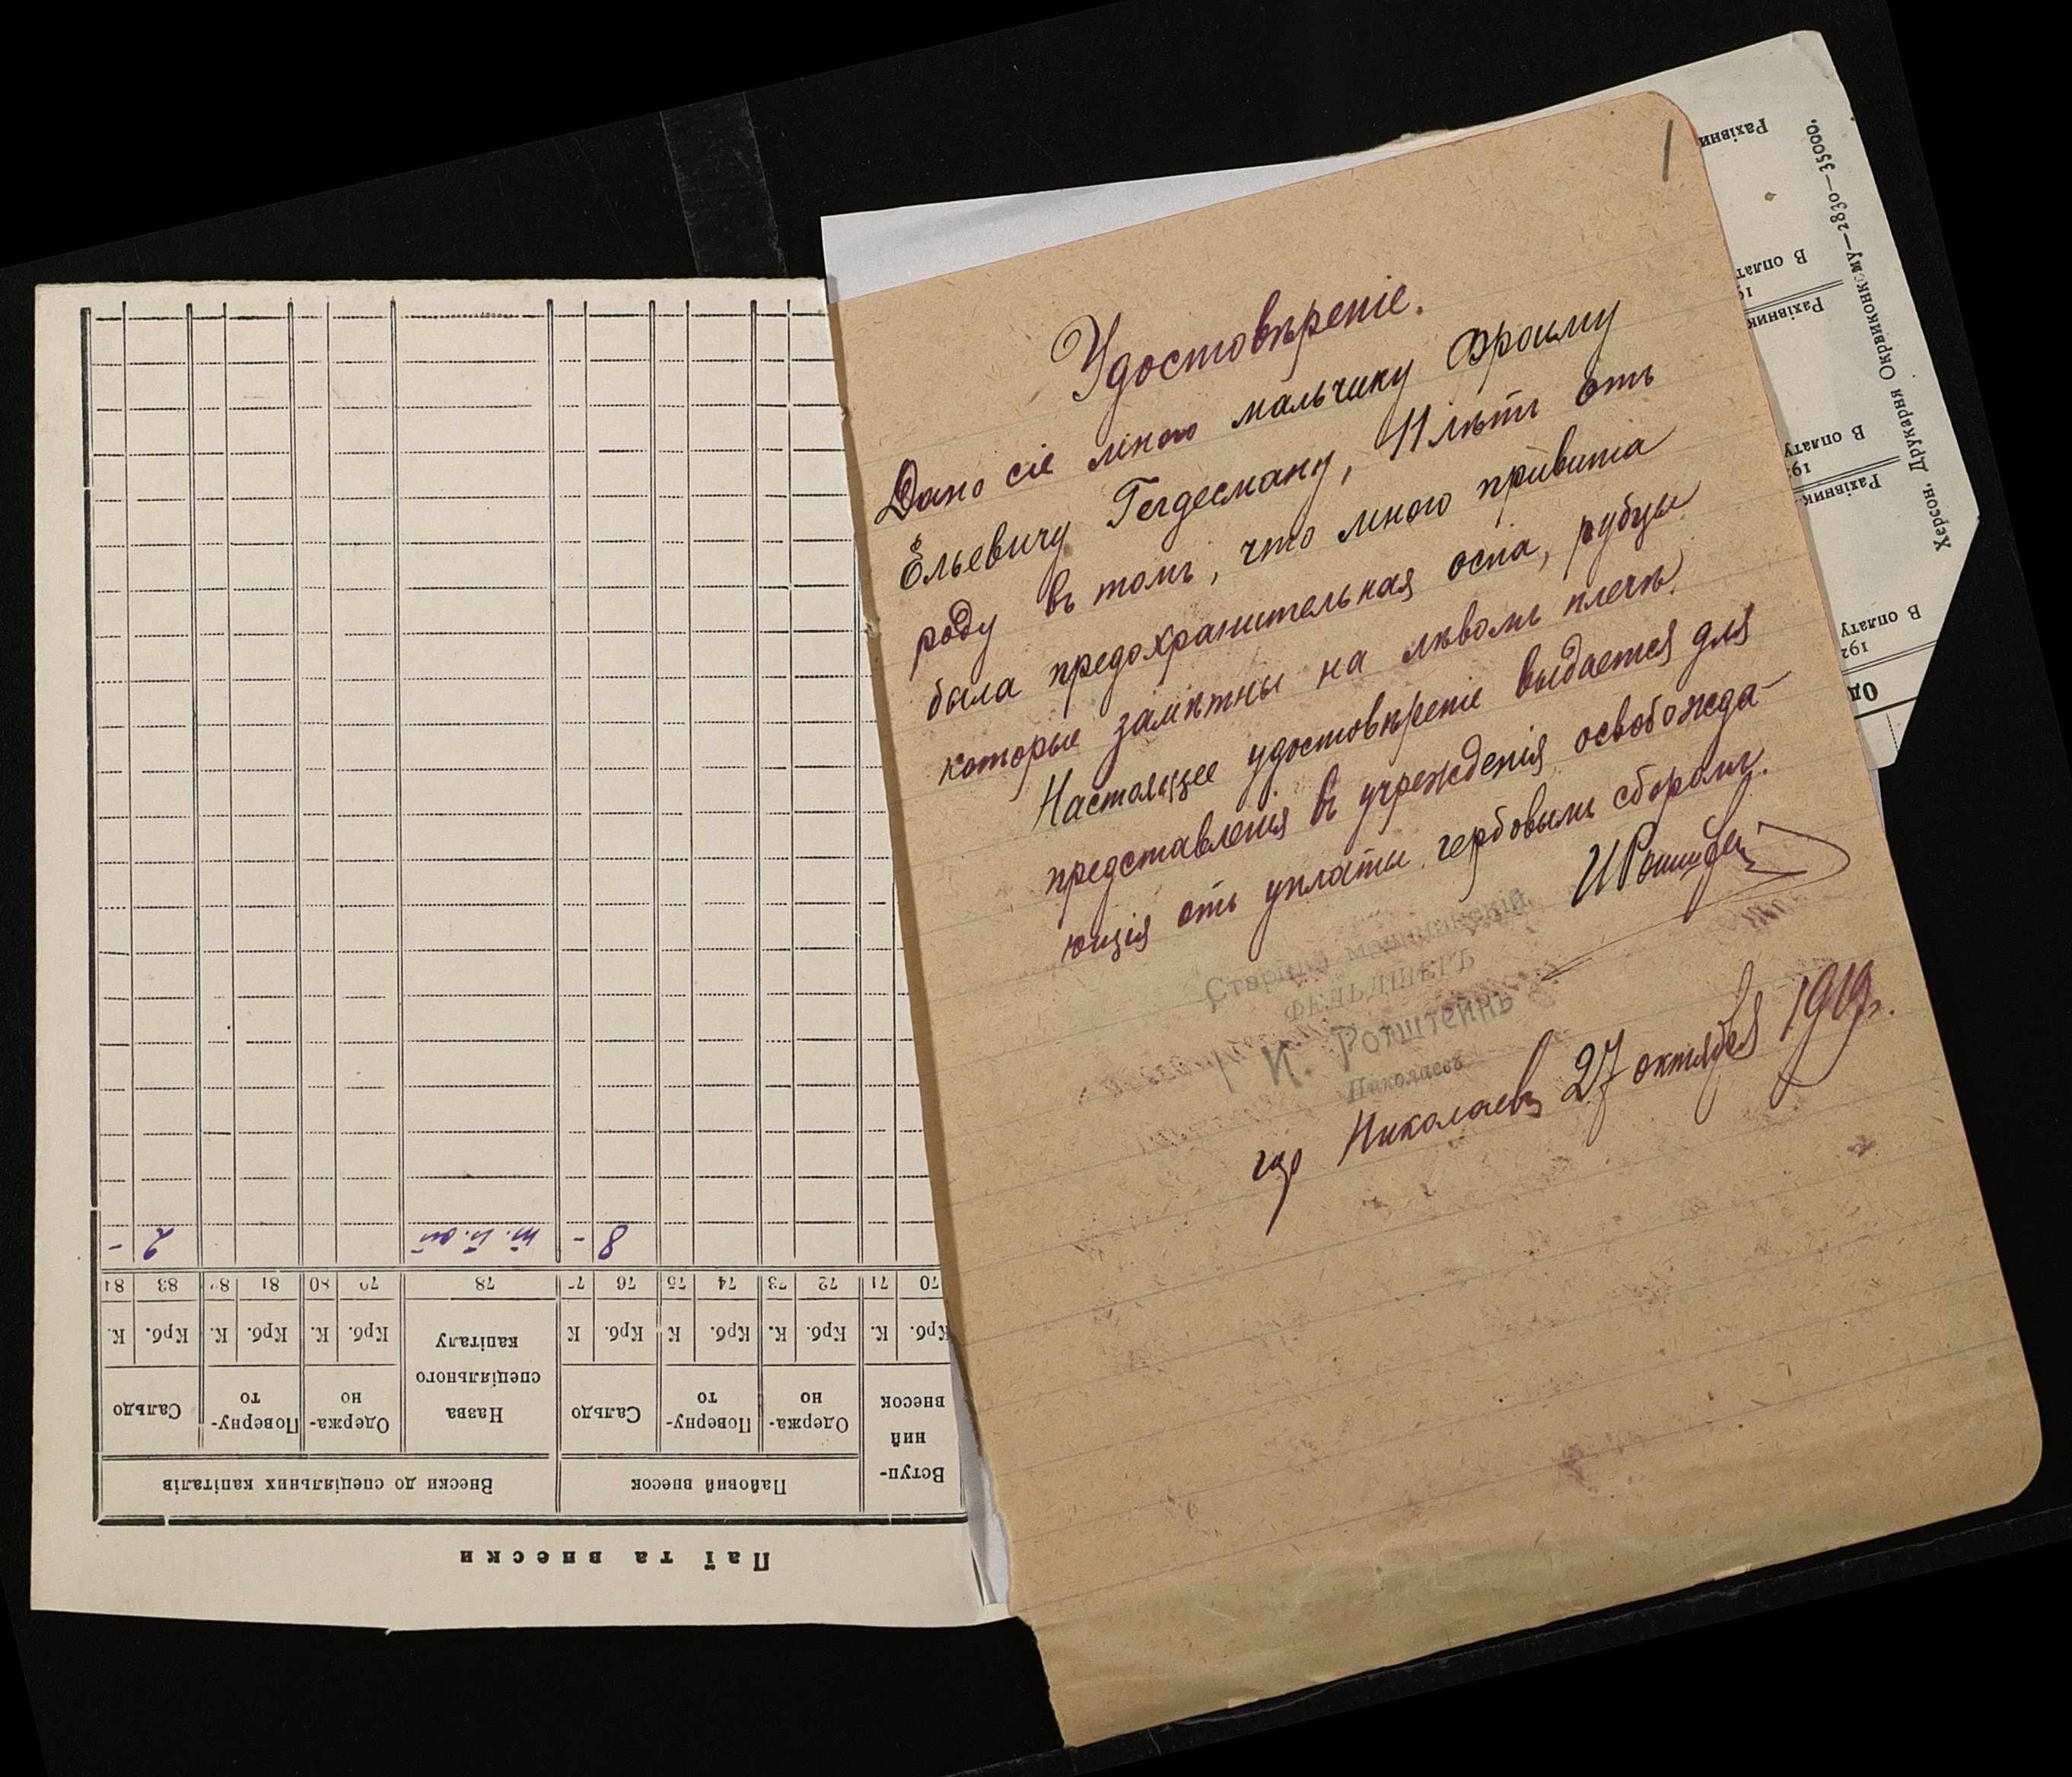 Удостовѣреніе.
Дано сіе мною мальчику Фроиму
Ельевичу Гердесману, 11 лѣтъ отъ
роду въ томъ, что мною привита
была предохранительная оспа, рубцы
которые замѣтны на лѣвомъ плечѣ.
Настоящее удостовѣреніе выдается для
представленія въ учрежденія освобожда-
ющія отъ уплаты гербовымъ сборомъ.
Старшій медицинскій
ФЕЛЬДШЕРЪ
И. Ротштейнъ
Николаевъ
гор Николаевъ 27 октября 1919г.
Паї та внески
Вступ-
ний
внесок
Пайовий внесок
Внески до спеціяльних капіталів
Одержа-
но
Поверну-
то
Сальдо
Назва
спеціяльного
капіталу
Одержа-
но
Поверну-
то
Сальдо
Крб. К. Крб. К. Крб. К Крб. К Крб. К. Крб. К. Крб. К.
70 71 72 73 74 75 76 77 78 79 80 81 82 83 84
8 - 2 -
Херсон. Друкарня Окрвиконкому—2830—35000.
Рахівник
В оплату
192
Рахівник
В оплату
192
Рахівник
В оплату
192